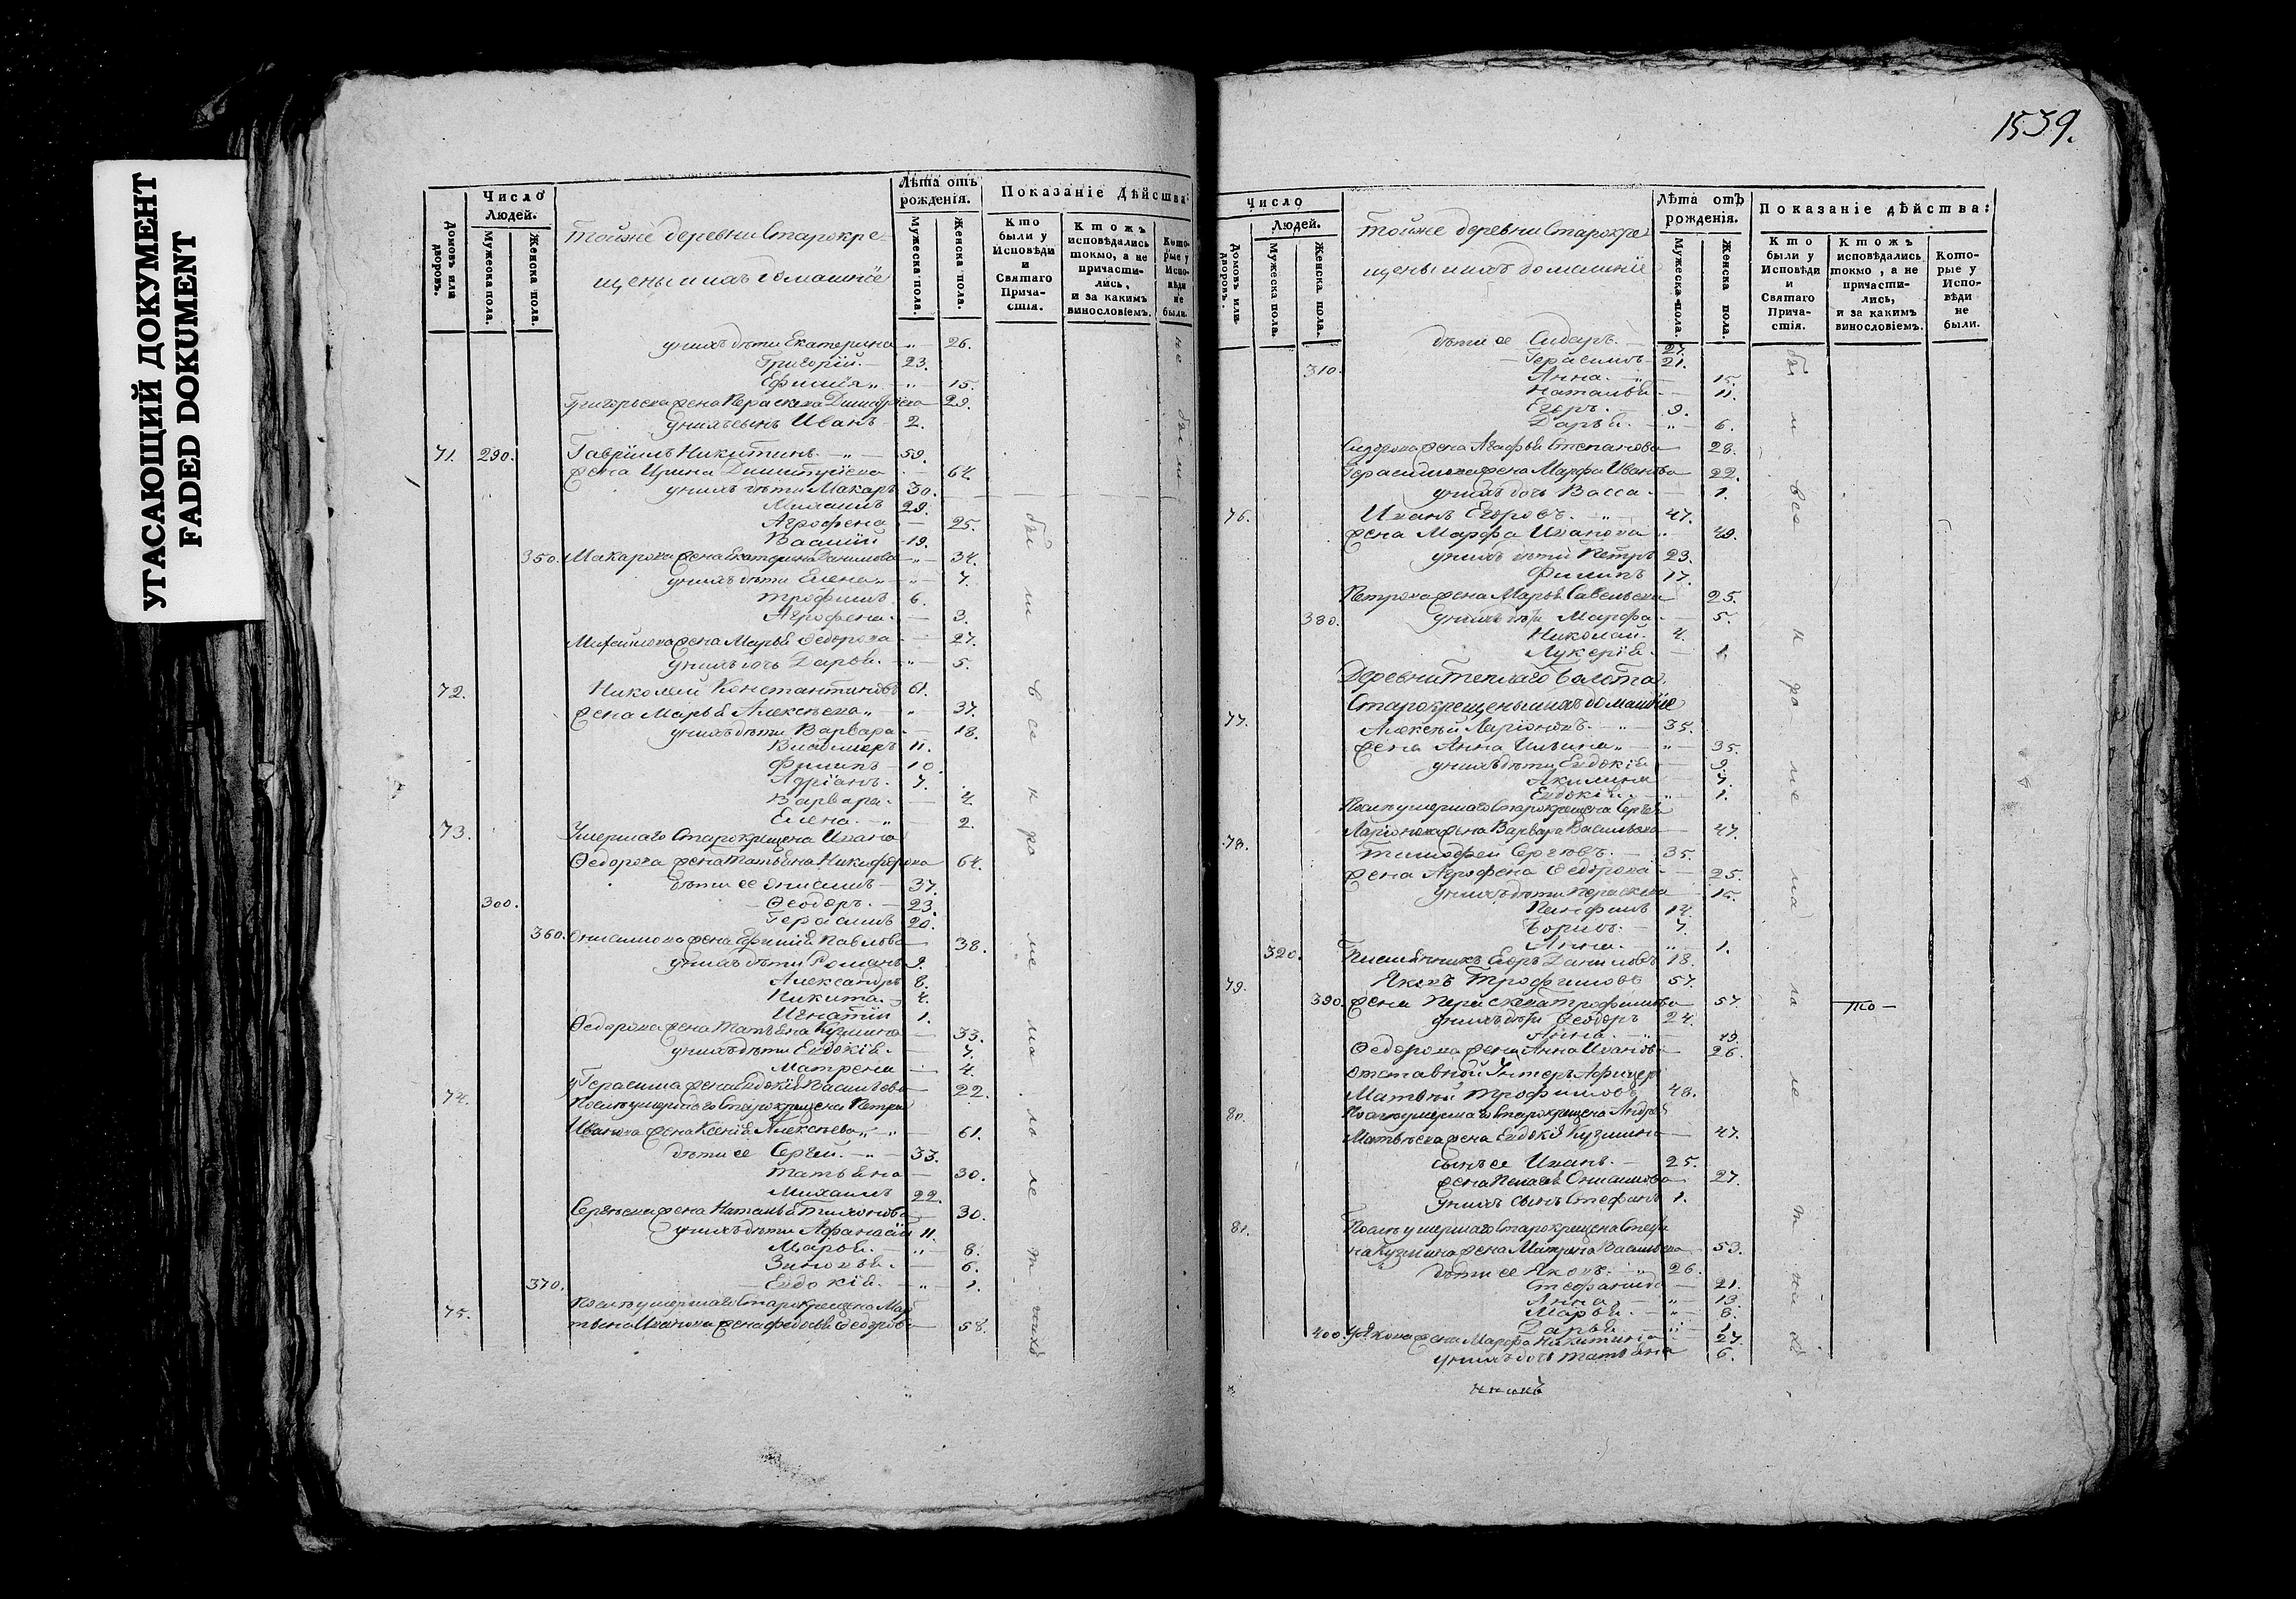 УГАСАЮЩИЙ ДОКУМЕНТ
FADED DOKUMENT
Число
Людей.
Домовъ или дворовъ.
Мужеска пола.
Женска пола.
Тойже деревни Старокре
щены и ихъ домашніе
Лѣта отъ
рожденія.
Мужеска пола.
Женска пола.
Показаніе Дѣйства:
Кто
были у
Исповѣди
и
Святаго
Прича-
стія.
Ктожъ
исповѣдались
токмо, а не
причасти-
лись,
и за какимъ
винословіемъ.
Кото-
рые у
Испо-
вѣди
не
были.
унихъ дѣти Екатерина 26.
Григорій. 23.
Ефимія 15.
Григорьева жена Параскева Димитріева 29.
унихъ сынъ Иванъ 2.
не были
71. 290. Гавріилъ Никитинъ 59.
жена Ирина Димитріева 64.
унихъ дѣти Макаръ 30.
Михаилъ 29.
Агрофена 25.
Василій 19.
350. Макарова жена Екатерина Данилова 34.
унихъ дѣти Елена 7.
Трофимъ 6.
Агрофена 3.
Михайлова жена Марья Федорова 27.
унихъ дочь Дарья 5.
72. Николай Константиновъ 61.
жена Марья Алексѣева 37.
унихъ дѣти Варвара 18.
Владимеръ 11.
Филипъ 10.
Адріанъ 7.
Варвара 4.
Елена 2.
73. Умершаго Старокрещена Ивана
Ѳедорова жена Татьяна Никифорова 64.
дѣти ее Онисимъ 37.
300. Ѳеодоръ 23.
Герасимъ 20.
360. Онисимова жена Ефимія Павлова 38.
унихъ дѣти Романъ 9.
Александръ 8.
Никита 4.
Игнатій 1.
Ѳедорова жена Татьяна Кузмина 33.
унихъ дѣти Евдокія 7.
Матрена 4.
у Герасима жена Евдокія Васильева 22.
74. Послѣ умершаго Старокрещена Петра
Иванова жена Ксенія Алексѣева 61.
дѣти ее Сергѣй 33.
Татьяна 30.
Михаилъ 22.
Сергѣева жена Наталья Тихонова 30.
унихъ дѣти Афанасій 11.
Марья 8.
Зиновья 6.
370. Евдокія 1.
75. Послѣ умершаго Старокрещена Мар
тына Иванова жена Федосья Ѳеодорова 58.
были все кроме малолетнихъ
1539.
Число
Людей.
Домовъ или дворовъ.
Мужеска пола.
Женска пола.
Тойже деревни Старокре
щены и ихъ домашніе
Лѣта отъ
рожденія.
Мужеска пола.
Женска пола.
Показаніе дѣйства:
Кто
были у
Исповѣди
и
Святаго
Прича-
стія.
Ктожъ
исповѣдались
токмо, а не
причасти-
лись,
и за какимъ
винословіемъ.
Кото-
рые у
Испо-
вѣди
не
были.
дѣти ее Сидоръ. 27.
310. Герасимъ 21.
Анна 15.
Наталья 11.
Егоръ 9.
Дарья 6.
Сидорова жена Агафья Степанова 28.
Герасимова жена Марфа Иванова 22.
унихъ дочь Васса 1.
76. Иванъ Егоровъ 47.
жена Марфа Иванова 49.
унихъ дѣти Петръ 23.
Филипъ 17.
Петрова жена Марья Савельева 25.
380. унихъ дѣти Марфа 5.
Николай 4.
Лукерія 1.
Деревни Теплаго болота
Старокрещены и ихъ домашніе
77. Алексѣй Ларіоновъ 35.
жена Анна Ильина 35.
унихъ дѣти Евдокія 9.
Акилина 7.
Евдокія 1.
Послѣ умершаго Старокрещена Сергѣя
Ларіонова жена Варвара Васильева 47.
78. Тимофей Сергѣевъ 35.
жена Агрофена Ѳедорова 25.
унихъ дѣти Параскева 15.
Панфилъ 14.
Борисъ 7.
Анна 1.
320. Данило 18.
79. Яковъ Трофимовъ 57.
390. жена Параскева Трофимова 57. то
унихъ дѣти Ѳеодоръ 24.
Анна
Ѳедорова жена Анна Иванова 26.
Отставной Унтеръ Афицер
Матвѣй Трофимовъ 48.
80. Послѣ умершаго Старокрещена Андрея
Матвѣева жена Евдокія Кузмина 47.
сынъ ее Иванъ 25.
жена Пелагея Онисимова 27.
унихъ сынъ Стефанъ 1.
81. Послѣ умершаго Старокрещена Стефа
на Кузмина жена Матрена Васильева 53.
дѣти ее Яковъ 26.
Стефанида 21.
Анна 13.
Марья 8.
Дарья 1.
400. У Якова жена Марфа Никитина 27.
унихъ дочь Татьяна 6.
были все кроме малолетнихъ